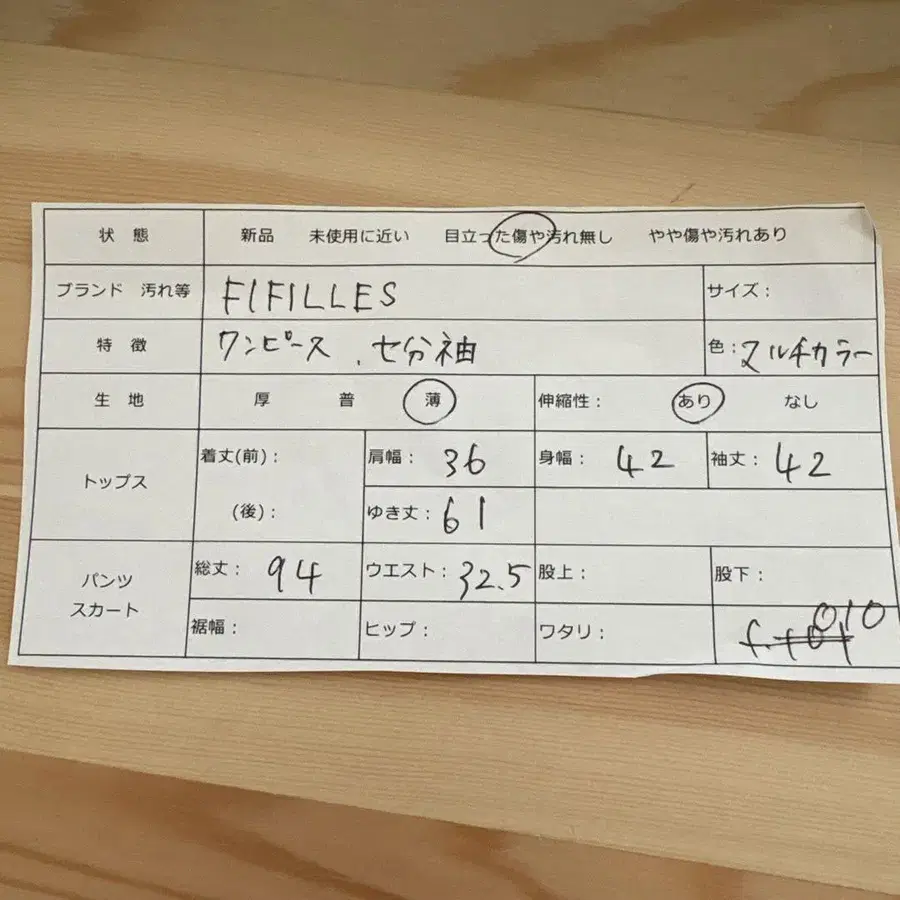 状 態 新品 未使用に近い 目立った傷や汚れ無し やや傷や汚れあり
ブランド 汚れ等 FIFILLES サイズ：
特 徴 ワンピース、七分袖 色：マルチカラー
生 地 厚 普 薄 伸縮性： あり なし
トップス 着丈(前)： 肩幅： 36 身幅： 42 袖丈： 42
(後)： ゆき丈： 61
パンツ スカート 総丈： 94 ウエスト： 32.5 股上： 股下：
裾幅： ヒップ： ワタリ： f. 010